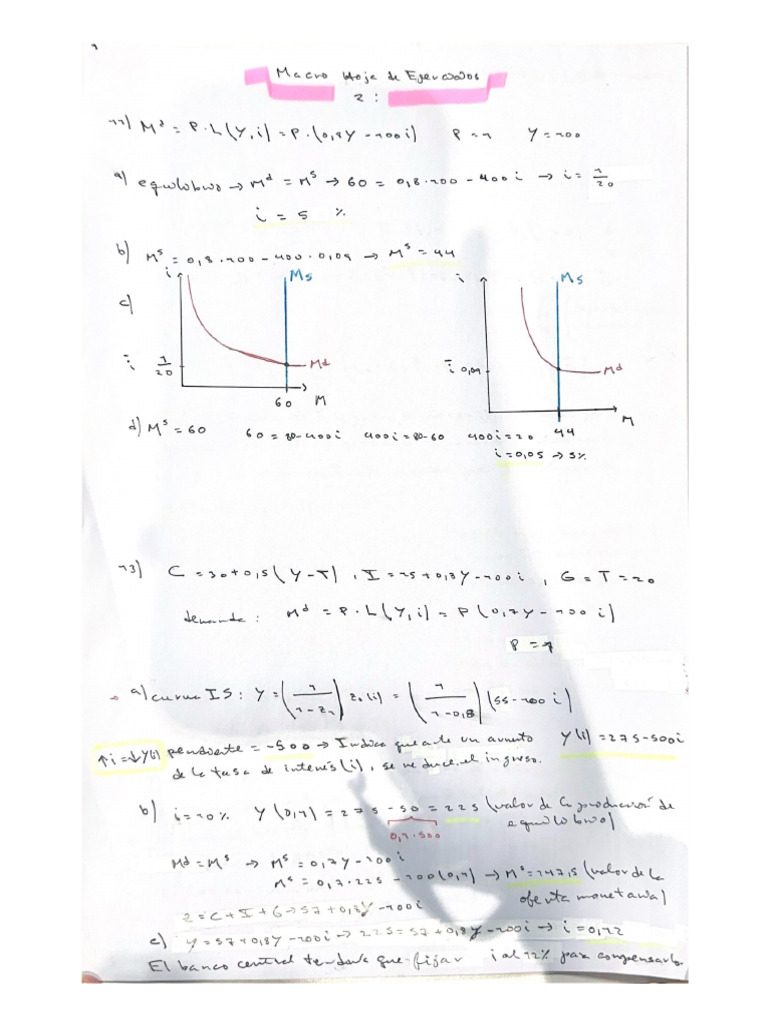 Macro Hoja de Ejercicios
2:
12) Mᵈ = P·L(Y,i) = P·(0,8Y - 400i) P = 1 Y = 100
a) equilibrio → Mᵈ = Mˢ → 60 = 0,8·100 - 400i → i = 1/20
i = 5 %
b) Mˢ = 0,8·100 - 400·0,09 → Mˢ = 44
c)
i Ms
ī 1/20 Md
60 M
i Ms
ī 0,09 Md
44 M
d) Mˢ = 60 60 = 80-400i 400i = 80-60 400i = 20
i = 0,05 → 5%
13) C = 30 + 0,5(Y - T), I = 25 + 0,3Y - 100i, G = T = 20
demanda: Mᵈ = P·L(Y,i) = P(0,7Y - 100i)
P = 1
→ a) curva IS: Y = (1/(1-z₁)) z₀(i) = (1/(1-0,8)) (55 - 100i)
↑i = ↓Y(i) pendiente = -500 → Indica que ante un aumento Y(i) = 275 - 500i
de la tasa de interés (i), se reduce el ingreso.
b) i = 10% Y(0,1) = 275 - 50 = 225 (valor de la producción de
equilibrio)
0,1·500
Md = Ms → Mˢ = 0,7Y - 100i
Mˢ = 0,7·225 - 100(0,1) → Mˢ = 147,5 (valor de la
oferta monetaria)
z = C + I + G → 57 + 0,8Y - 100i
c) Y = 57 + 0,8Y - 100i → 225 = 57 + 0,8Y - 100i → i = 0,12
El banco central tendría que fijar i al 12% para compensarlo.